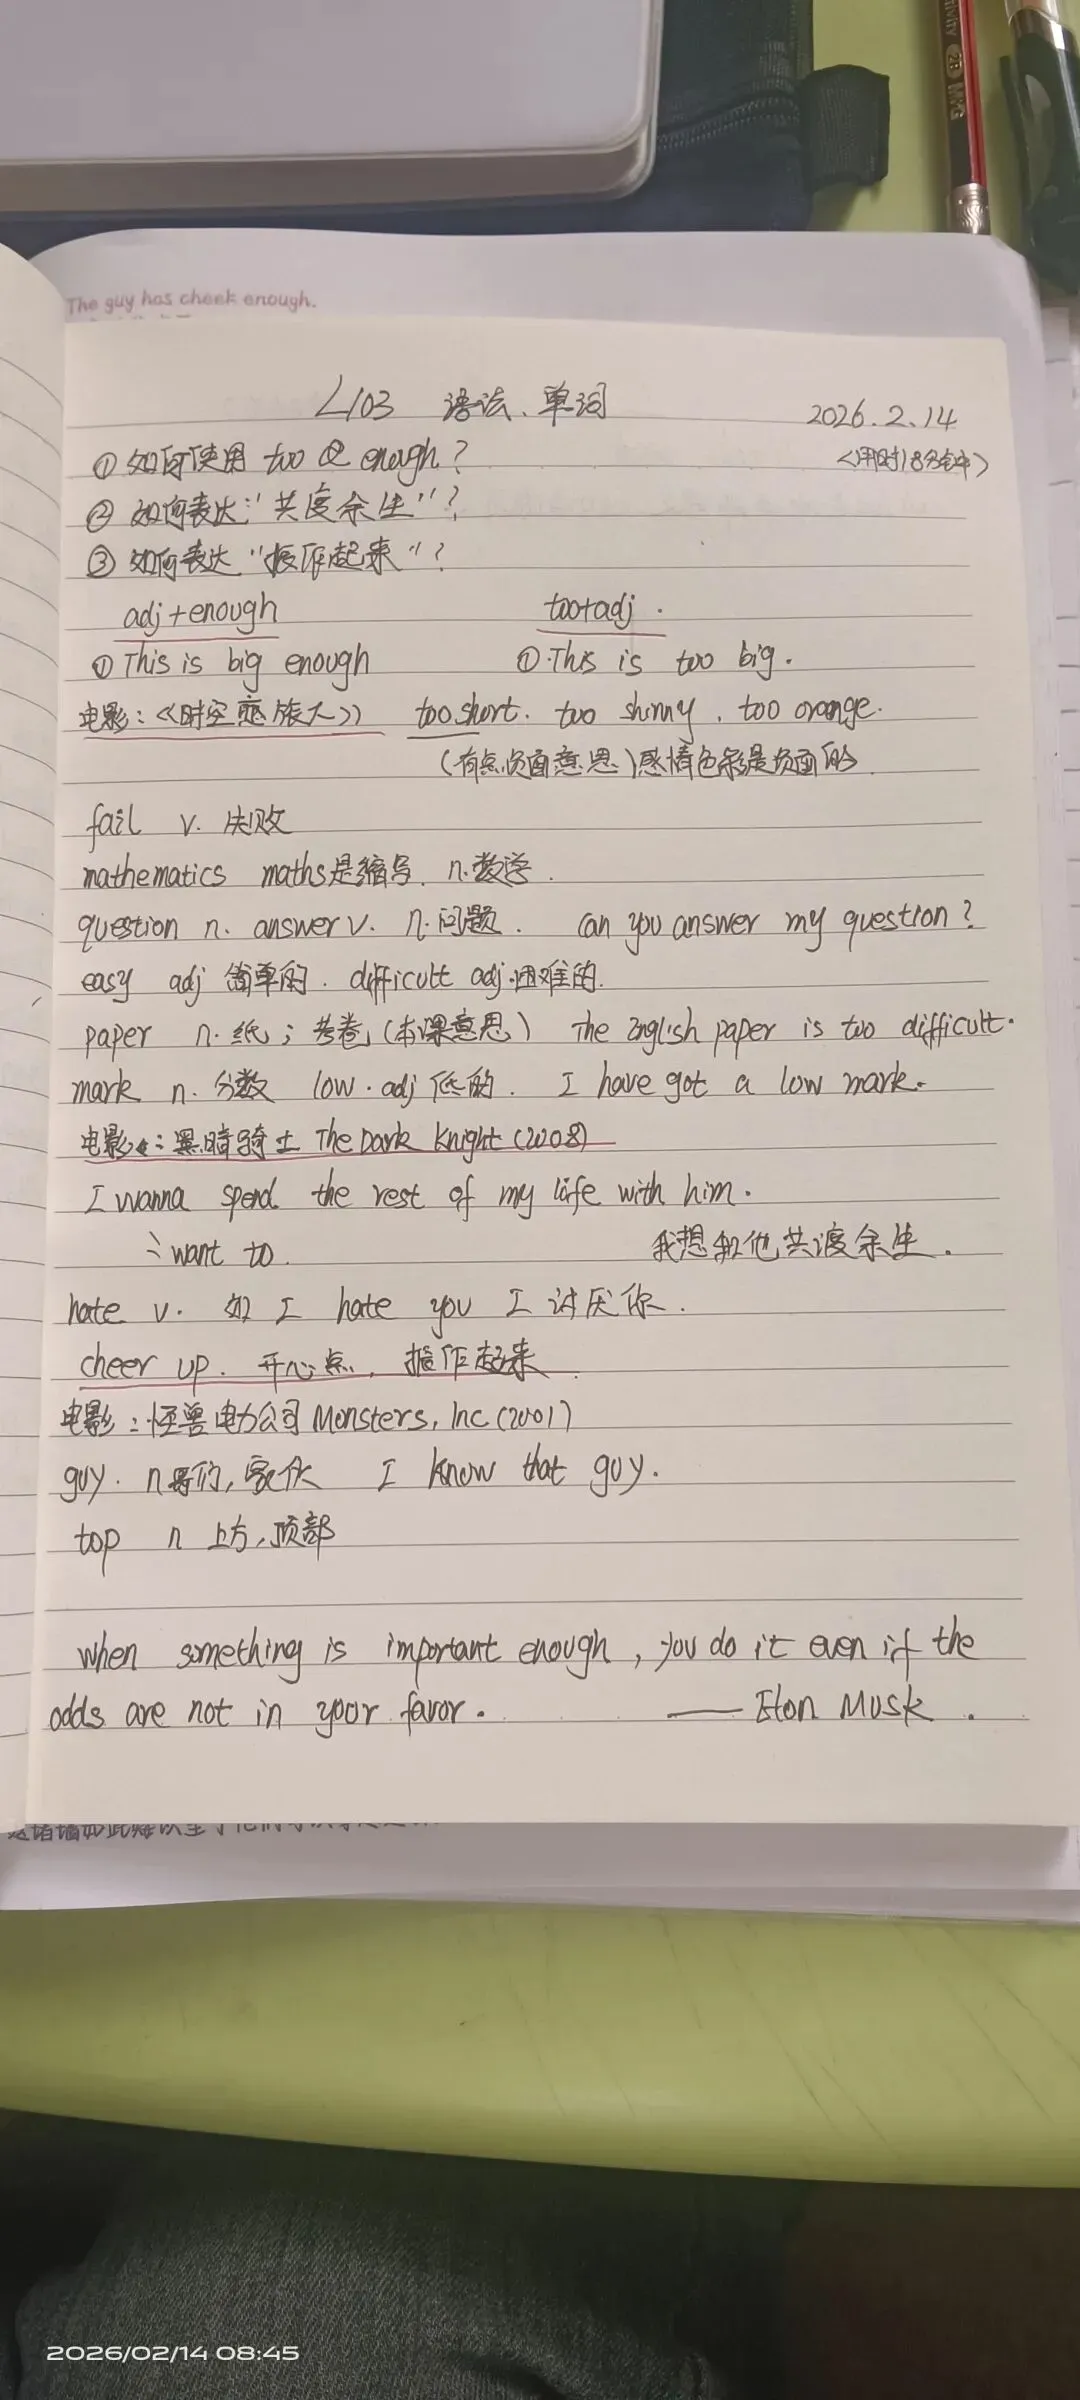 2B
The guy has cheek enough.
L103 语法、单词
2026.2.14
①如何使用 too 和 enough?
<用时18分钟>
②如何表达:"共度余生"?
③如何表达"振作起来"?
adj+enough too+adj.
①This is big enough ①.This is too big.
电影:《时空恋旅人》 too short. too shinny. too orange.
(有点负面意思)感情色彩是负面的
fail v. 失败
mathematics maths是缩写. n.数学.
question n. answer v. n.问题. Can you answer my question?
easy adj 简单的. difficult adj.困难的.
paper n.纸;考卷(本课意思) The English paper is too difficult.
mark n.分数 low.adj 低的. I have got a low mark.
电影:黑暗骑士 The Dark Knight(2008)
I wanna spend the rest of my life with him.
want to. 我想和他共渡余生.
hate v. 如 I hate you I 讨厌你.
cheer up. 开心点,振作起来.
电影:怪兽电力公司 Monsters, Inc(2001)
guy. n哥们,家伙 I know that guy.
top n 上方,顶部
When something is important enough, you do it even if the
odds are not in your favor. —— Elon Musk.
2026/02/14 08:45